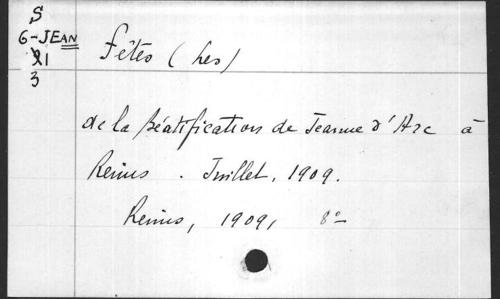 S
6-JEAN
21
3
Fêtes (Les)
de la Béatification de Jeanne d'Arc à
Reims. Juillet, 1909.
Reims, 1909, 8º